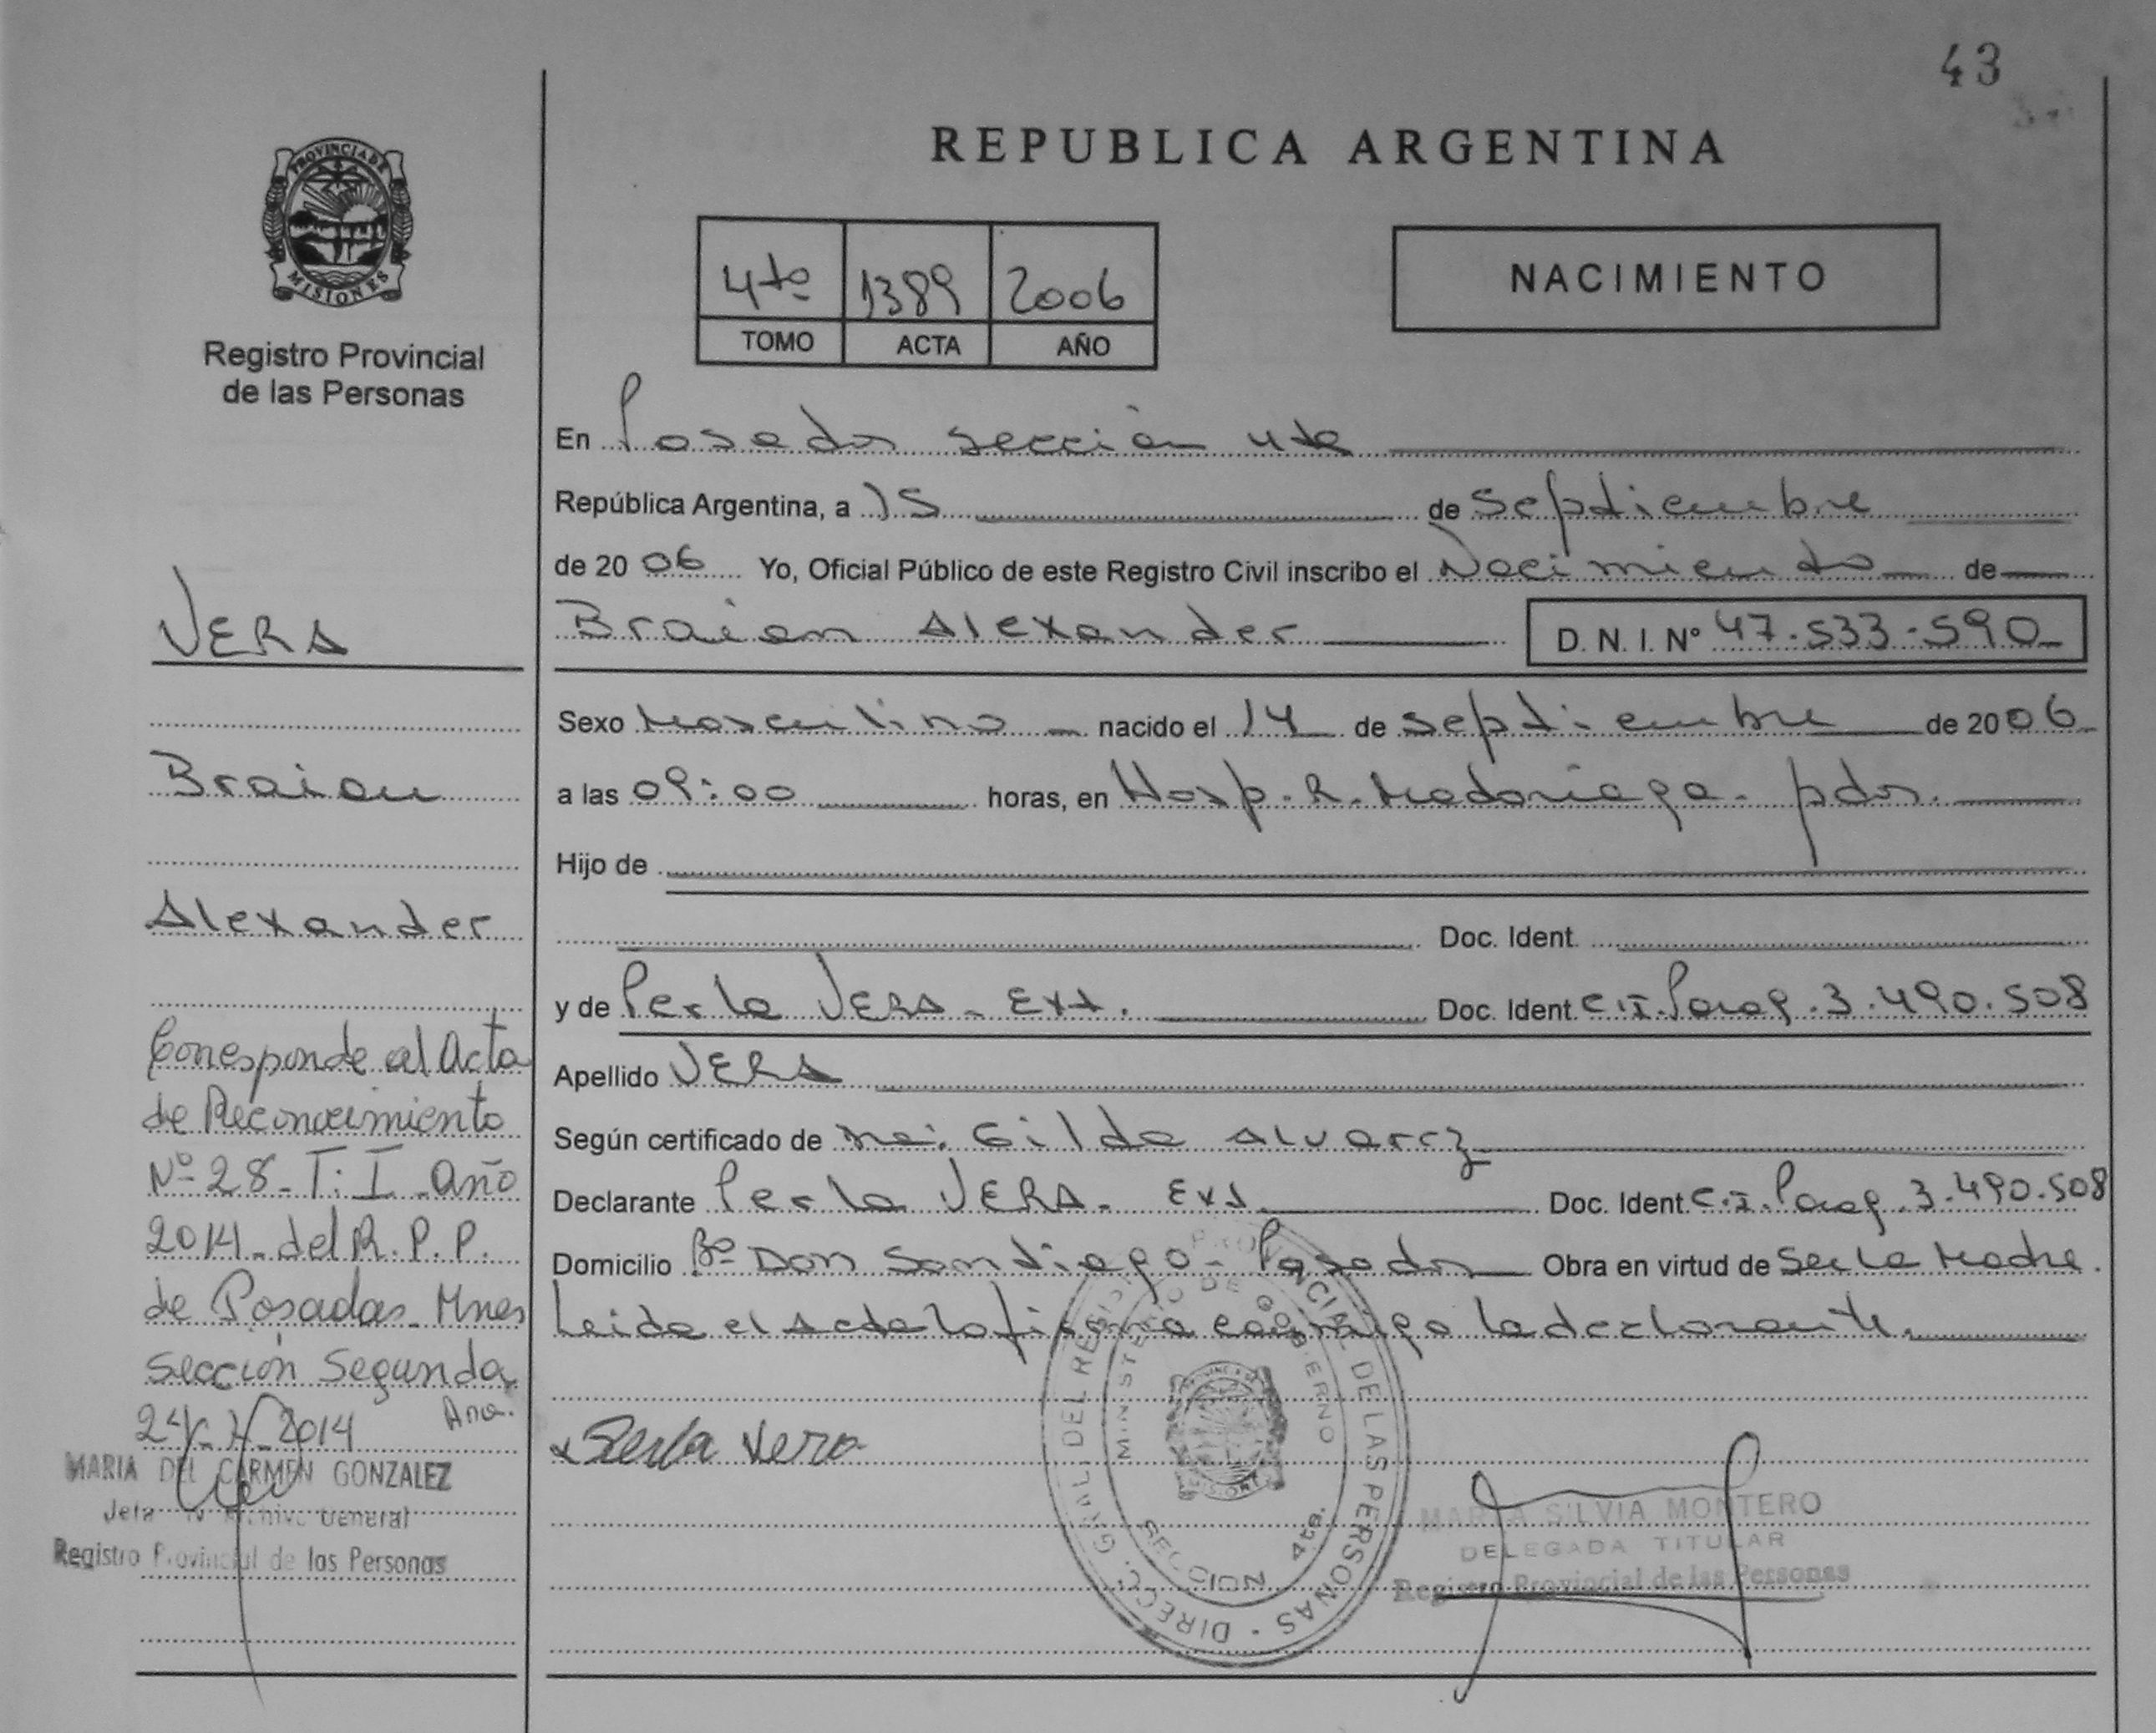 43
REPUBLICA ARGENTINA
PROVINCIA DE
MISIONES
Registro Provincial
de las Personas
4to 1389 2006
TOMO ACTA AÑO
NACIMIENTO
En Posadas sección 4ta
República Argentina, a 15 de septiembre
de 2006 Yo, Oficial Público de este Registro Civil inscribo el Nacimiento de
Braian Alexander D. N. I. Nº 47.533.590
Sexo Masculino nacido el 14 de septiembre de 2006
a las 09:00 horas, en Hosp. R. Madariaga. pdas.
Hijo de
Doc. Ident.
y de Perla VERA - Ext. Doc. Ident C.I. Parag. 3.490.508
Apellido VERA
Según certificado de Gilda Alvarez
Declarante Perla VERA - Ext. Doc. Ident C.I. Parag. 3.490.508
Domicilio Bº Don Santiago - Posadas Obra en virtud de Ser la Madre.
Leida el Acta la firma conmigo la declarante.
x Perla Vera
VERA
Braian
Alexander
Corresponde al Acta
de Reconocimiento
Nº 28 - T: I - año
2014 - del R. P. P.
de Posadas - Mnes
Sección Segunda
2014
MARIA DEL CARMEN GONZALEZ
Archivo General
Registro Provincial de las Personas
DIRECC. GRAL. DEL REGISTRO PROVINCIAL DE LAS PERSONAS -
MINISTERIO DE GOBIERNO
SECCION 4ta.
MARIA SILVIA MONTERO
DELEGADA TITULAR
Registro Provincial de las Personas